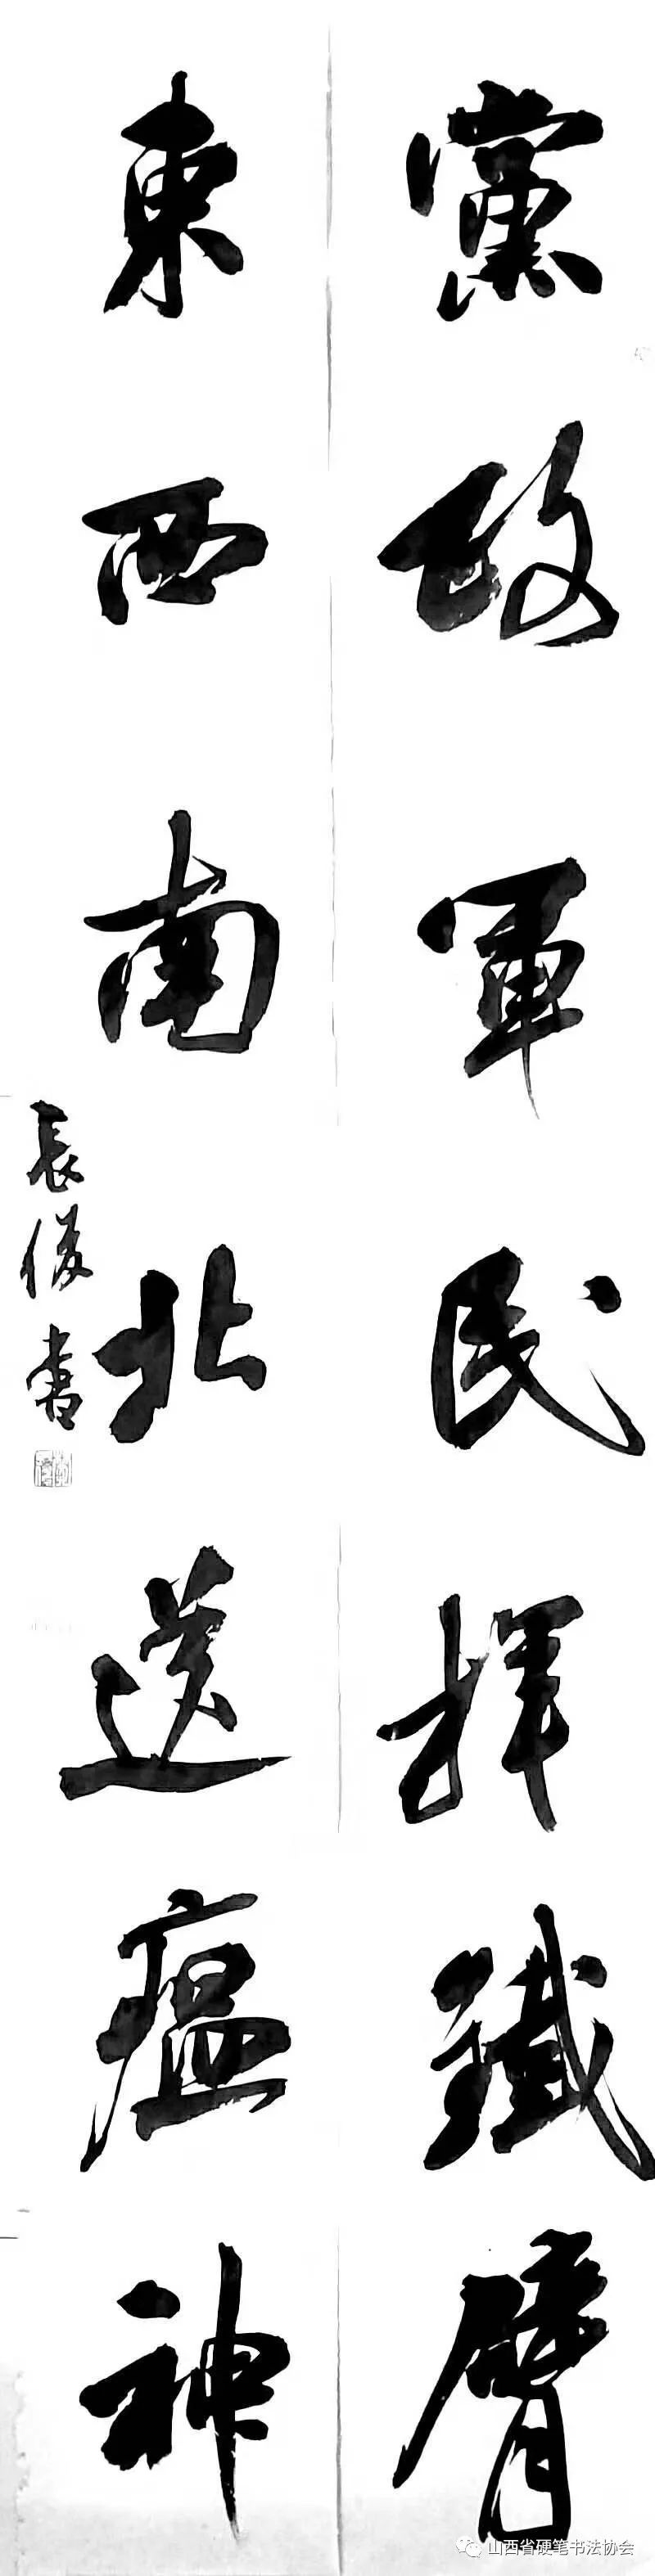 黨政軍民揮鐵臂
東西南北送瘟神
長俊書
山西省硬笔书法协会